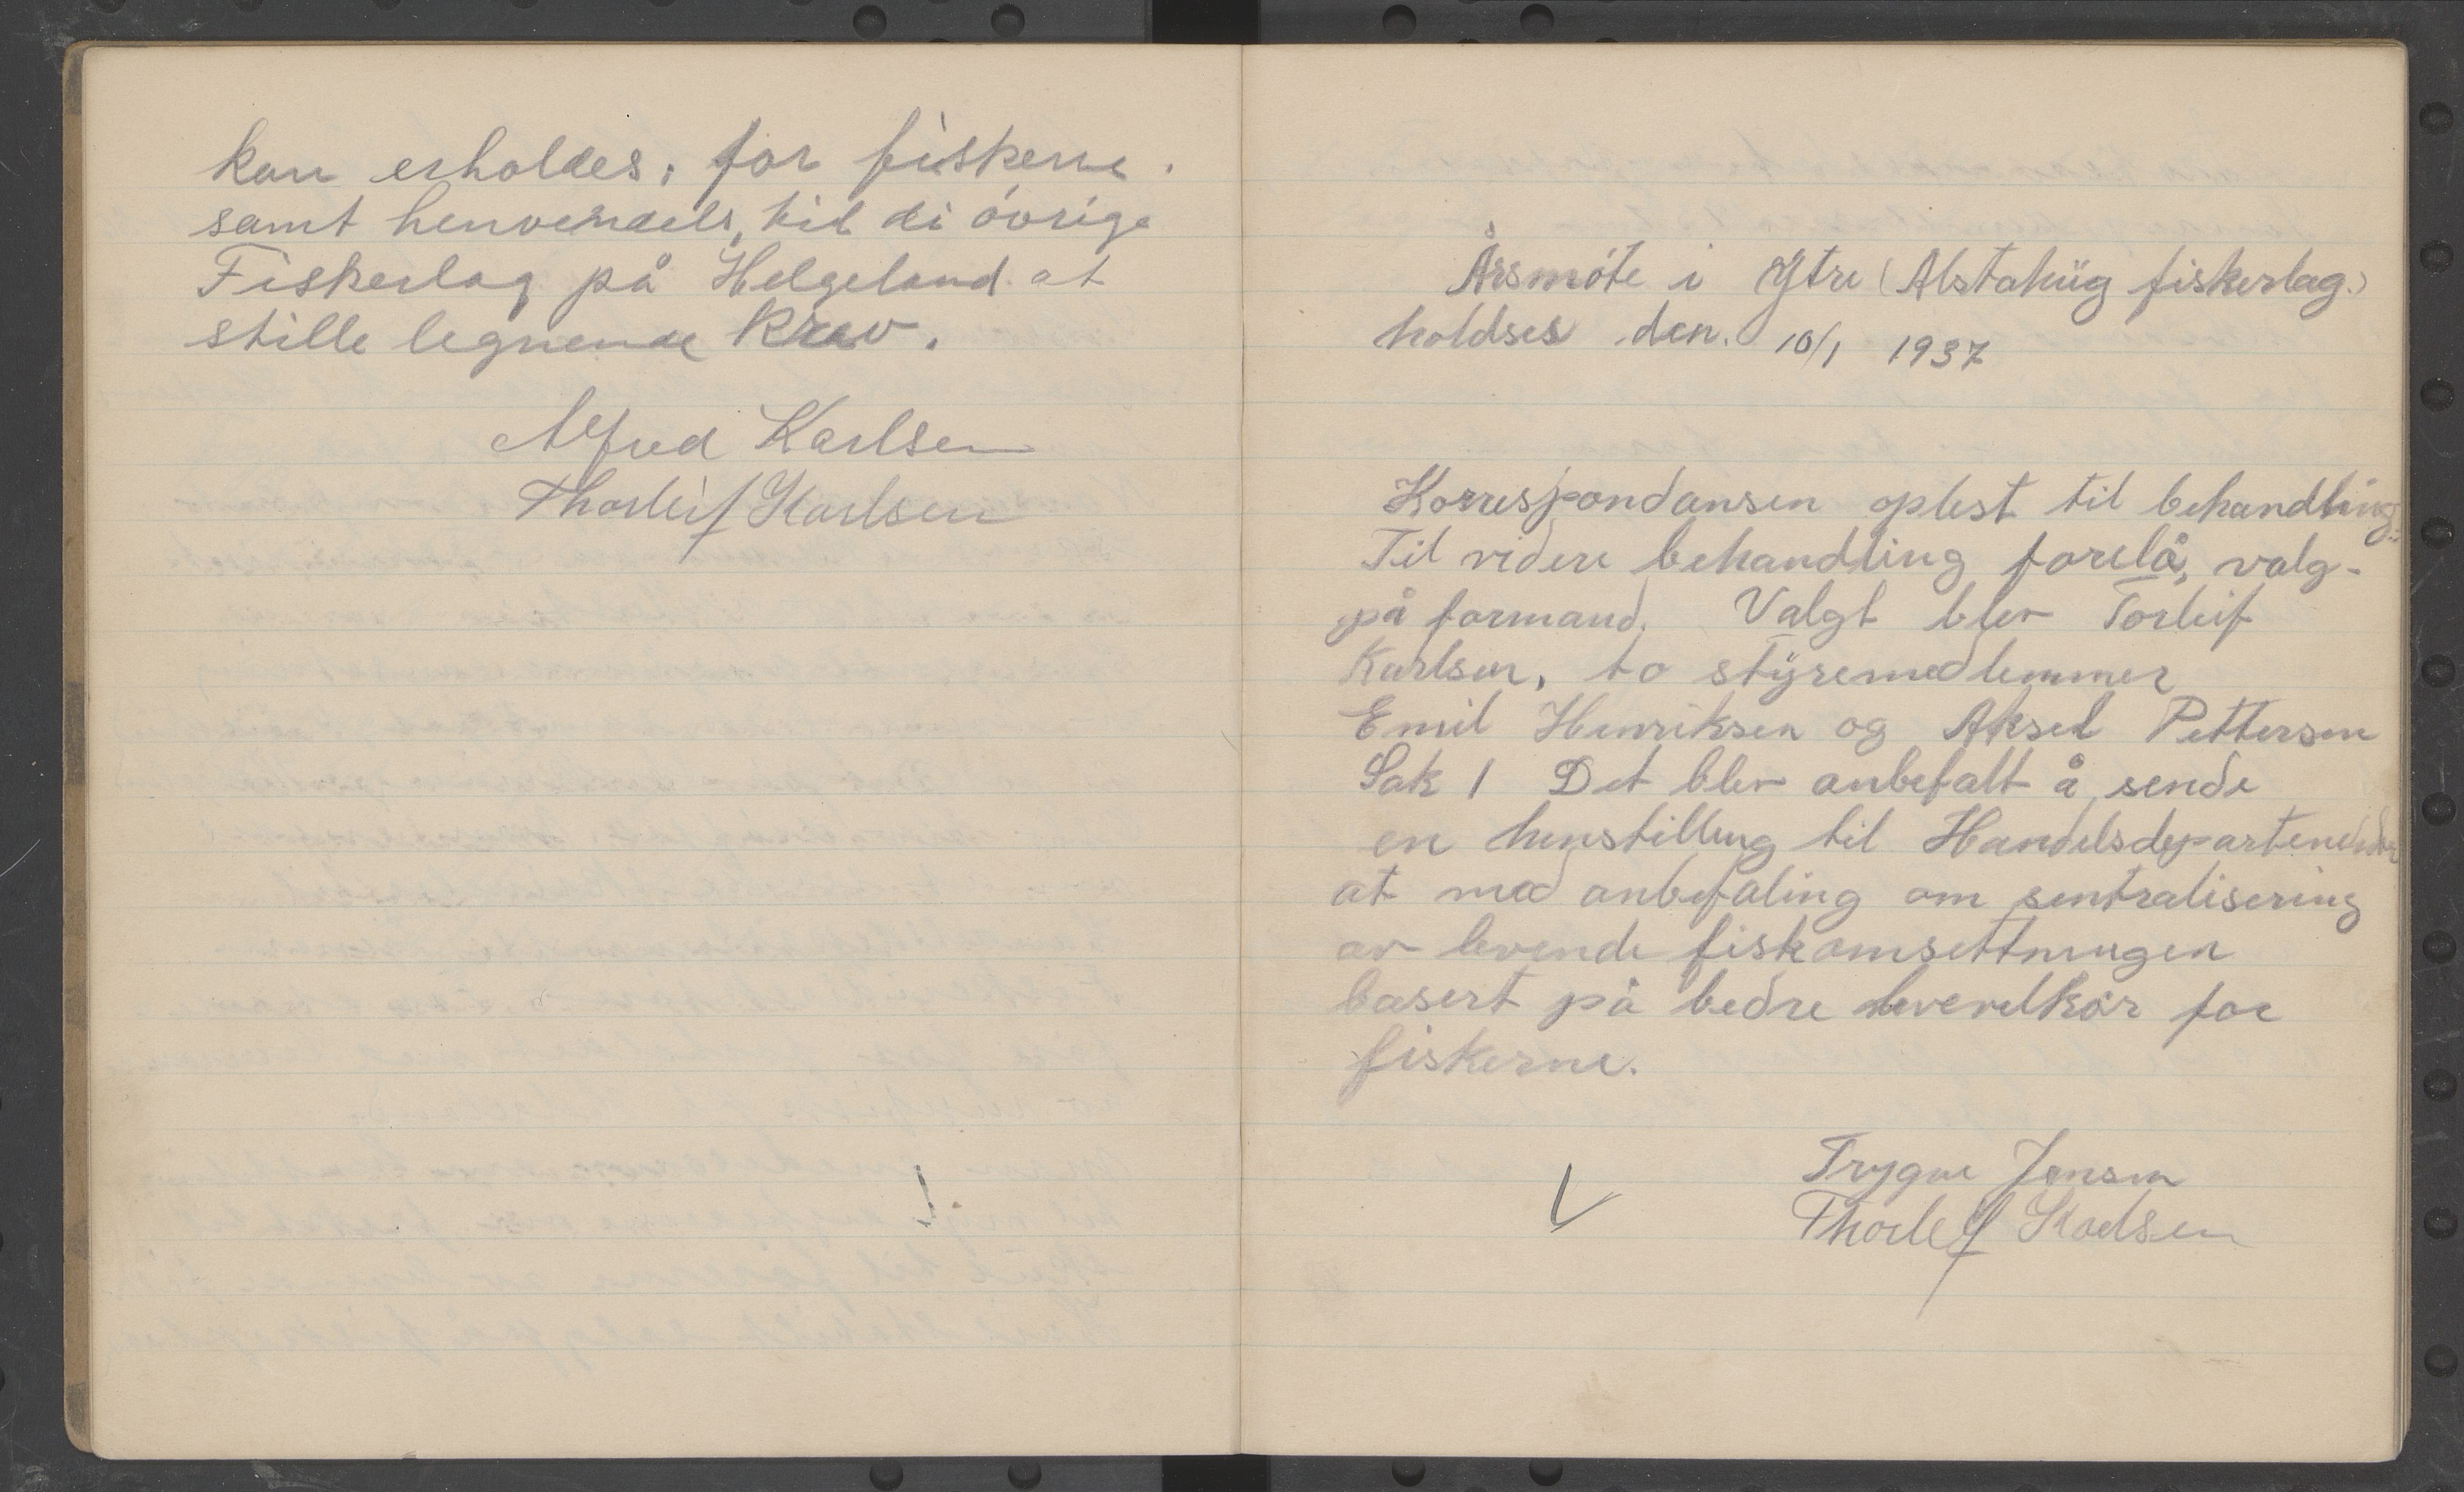 kan erholdes, for fiskerne.
samt henvendels, til di övrige
Fiskerlag på Helgeland at
stille legnende Krav.
Alfred Karlsen
Thorleif Karlsen
Årsmöte i Ytre (Alstahüg fiskerlag.)
holdses den. 10/1 1937
Korrespondansen oplest til behandling.
Til videre behandling forelå, valg-
på formand. Valgt blev Torleif
Karlsen, to styremedlemmer
Emil Henriksen og Aksel Pettersen
Sak 1 Det blev anbefalt å sende
en henstilling til
at med anbefaling om sentralisering
av levende fiskomsettningen
basert på bedre levevelkår for
fiskerne.
Trygve Jensen
Thorleif Karlsen